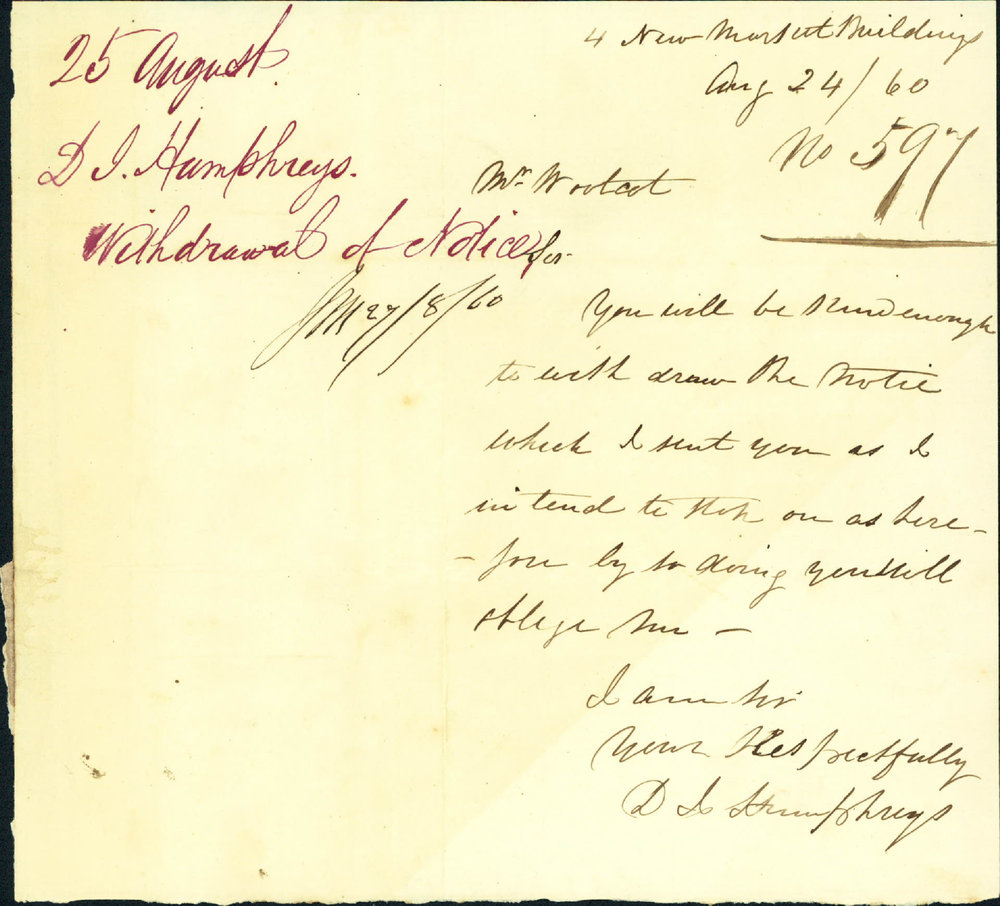 25 August.
D. I. Humphreys.
Withdrawal of Notice
27/8/60
4 New Market Buildings
Aug 24/60
No 597
Mr. Woolcot
Sir
You will be kind enough
to with draw the Notice
which I sent you as I
intend to stop on as here-
-fore by so doing you will
oblige me –
I am Sir
Yours Respectfully
D I Humphreys